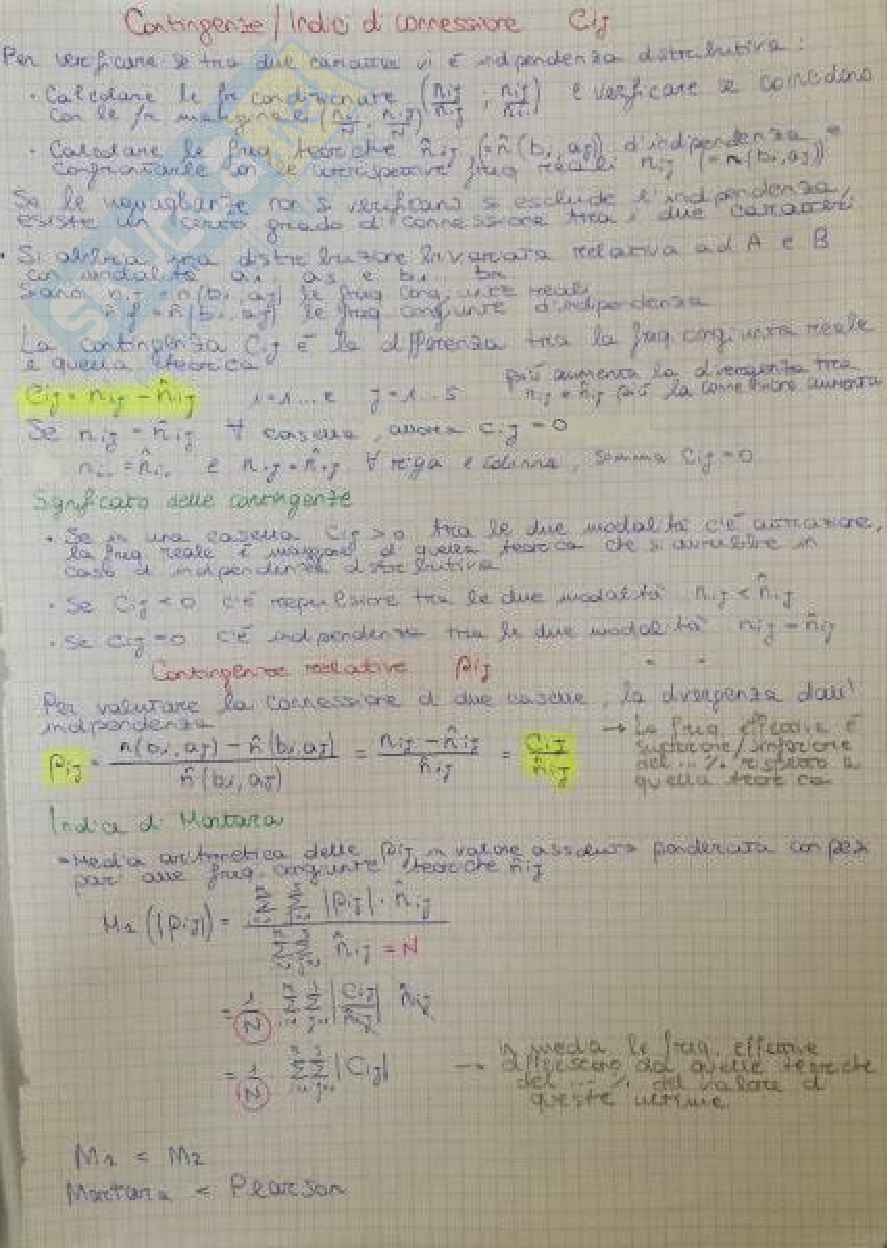 Contingenze/Indici di connessione Cij
Per verificare se tra due caratteri vi è indipendenza distributiva:
· Calcolare le fr condizionate (nij/nij ; nij/nij) e verificare se coincidono
con le fr marginali (nij/N, nij/N)
· Calcolare le freq teoriche n̂ij (=n̂(bi, aj)) d'indipendenza e
confrontarle con le corrispettive freq reali nij (=n(bi,aj))
Se le uguaglianze non si verificano si esclude l'indipendenza,
esiste un certo grado di connessione tra i due caratteri
· Si abbia una distribuzione bivariata relativa ad A e B
con modalità a1 as e b1... br
Siano nij = n(bi, aj) le freq congiunte reali
n̂ij = n̂(bi, aj) le freq congiunte d'indipendenza
La contingenza Cij è la differenza tra la freq congiunta reale
e quella teorica
Cij = nij - n̂ij i=1...r j=1...s più aumenta la divergenza tra
nij e n̂ij più la connessione aumenta
Se nij = n̂ij ∀ casella, allora Cij = 0
ni. = n̂i. e n.j = n̂.j ∀ riga e colonna, somma Cij=0
Significato delle contingenze
· Se in una casella Cij > 0 tra le due modalità c'è attrazione,
la freq reale è maggiore di quella teorica che si avrebbe in
caso di indipendenza distributiva
· Se Cij < 0 c'è repulsione tra le due modalità nij < n̂ij
· Se Cij = 0 c'è indipendenza tra le due modalità nij = n̂ij
Contingenze relative ρij
Per valutare la connessione di due caselle, la divergenza dall'
indipendenza
ρij = n(bi, aj) - n̂(bi, aj) / n̂(bi, aj) = nij - n̂ij / n̂ij = Cij / n̂ij → La freq. effettiva è
superiore/inferiore
del ... % rispetto a
quella teorica
Indice di Mortara
= Media aritmetica delle ρij in valore assoluto ponderata con pesi
pari alle freq. congiunte teoriche n̂ij
M1 (|ρij|) = Σ Σ |ρij| · n̂ij / Σ Σ n̂ij = N
= 1/N Σ Σ |Cij/n̂ij| n̂ij
= 1/N Σ Σ |Cij| → In media le freq. effettive
differiscono da quelle teoriche
del ... % del valore di
queste ultime.
M1 < M2
Mortara < Pearson